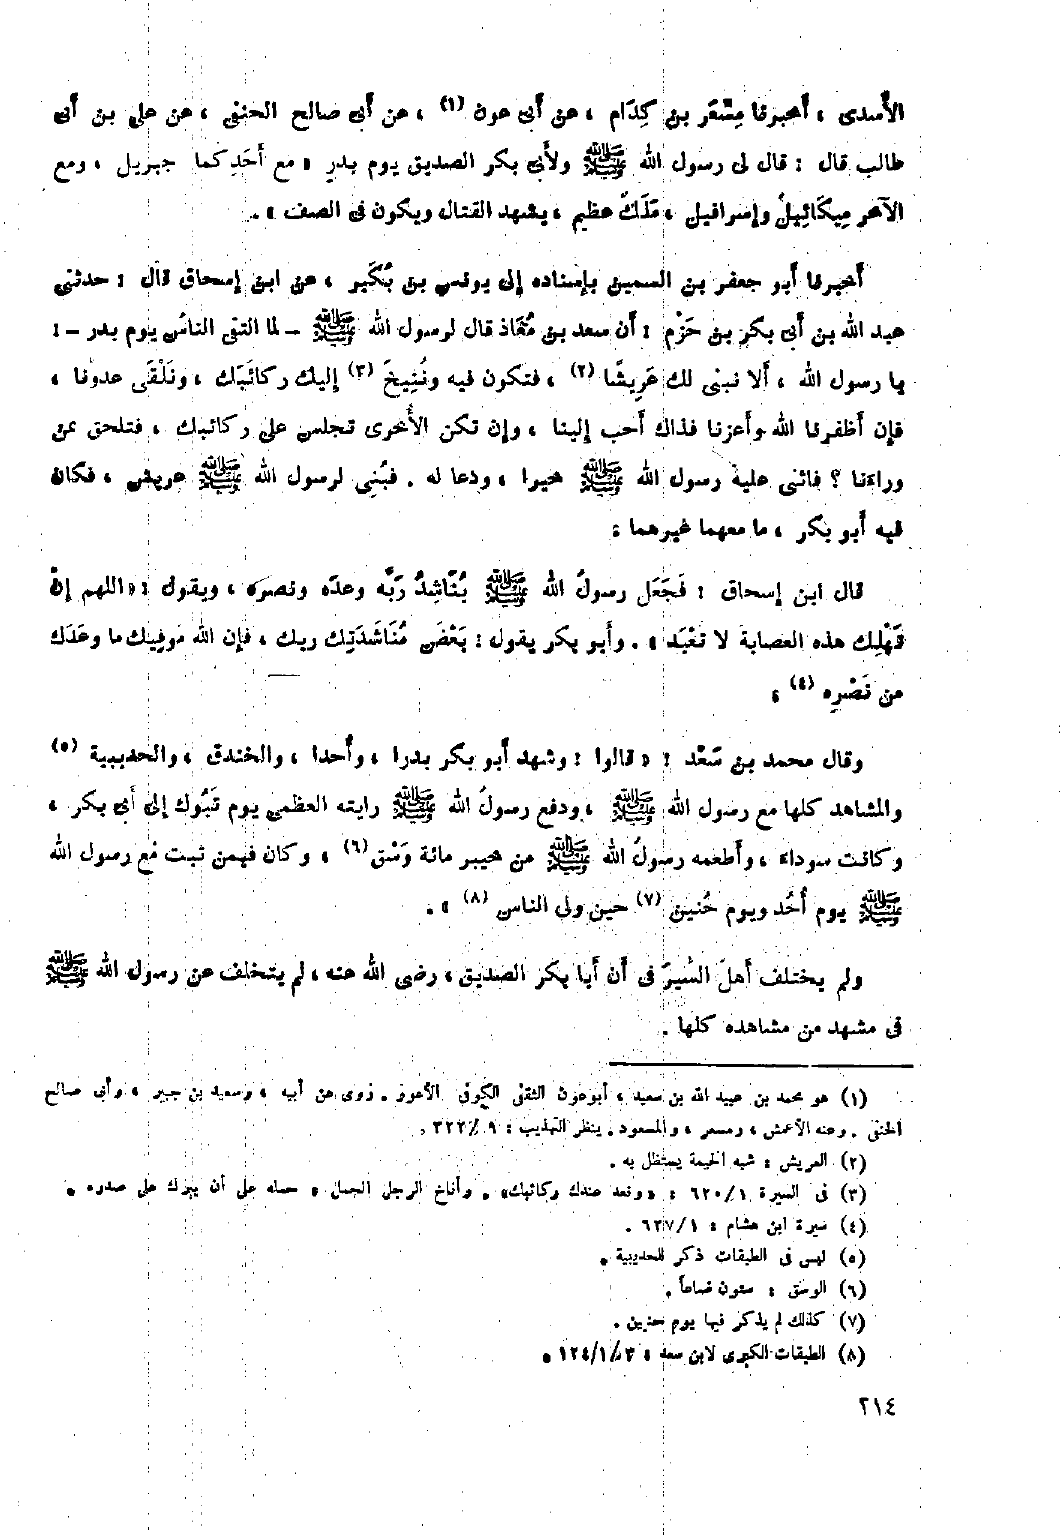 الأسدى ، أخبرنا مِسْعَر بن كِدَام ، عن أبى عون (١) ، عن أبى صالح الحنفى ، عن على بن أبى
طالب قال : قال لى رسول الله ﷺ ولأبى بكر الصديق يوم بدر « مع أَحَدِكما جبريل ، ومع
الآخر مِيكَائِيلُ وإسرافيل ، مَلَكٌ عظيم ، يشهد القتال ويكون فى الصف » .
أخبرنا أبو جعفر بن السمين بإسناده إلى يونس بن بُكَير ، عن ابن إسحاق قال : حدثنى
عبد الله بن أبى بكر بن حَزْم : أن سعد بن مُعَاذ قال لرسول الله ﷺ - لما التقى الناس يوم بدر - :
يا رسول الله ، ألا نبنى لك عَرِيشًا (٢) ، فتكون فيه ونُنِيخَ (٣) إليك ركائبَك ، ونَلْقَى عدونا ،
فإن أظفرنا الله وأعزنا فذاك أحب إلينا ، وإن تكن الأُخرى تجلس على ركائبك ، فتلحق بمن
وراءنا ؟ فأثنى عليه رسول الله ﷺ خيرا ، ودعا له . فبُنِى لرسول الله ﷺ عريش ، فكان
فيه أبو بكر ، ما معهما غيرهما :
قال ابن إسحاق : فَجَعَل رسولُ الله ﷺ يُنَاشِدُ رَبَّه وعدَه ونصرَه ، ويقول : « اللهم إن
تَهْلِك هذه العصابة لا تُعْبَد » . وأبو بكر يقول : بَعْضَ مُنَاشَدَتِك ربك ، فإن الله مُوفيك ما وعَدَك
من نَصْرِه (٤) ؛
وقال محمد بن سَعْد : « قالوا : وشهد أبو بكر بدرا ، وأُحدا ، والخندق ، والحديبية (٥)
والمشاهد كلها مع رسول الله ﷺ ، ودفع رسولُ الله ﷺ رايته العظمى يوم تَبُوك إلى أبى بكر ،
وكانت سوداء ، وأطعمه رسولُ الله ﷺ من خيبر مائة وَسْق (٦) ، وكان فيمن ثبت مع رسول الله
ﷺ يوم أُحُد ويوم حُنين (٧) حين ولى الناس (٨) » .
ولم يختلف أهلُ السِّيَر فى أن أبا بكر الصديق ، رضى الله عنه ، لم يتخلف عن رسول الله ﷺ
فى مشهد من مشاهده كلها .
(١) هو محمد بن عبيد الله بن سعيد ، أبو عون الثقفى الكوفى الأعور . روى عن أبيه ، وسعيد بن جبير ، وأبى صالح
الحنفى . وعنه الأعمش ، ومسعر ، والمسعود . ينظر التهذيب : ٩ / ٣٢٢ .
(٢) العريش : شبه الخيمة يستظل به .
(٣) فى السيرة ١/٦٢٠ : « ونعد عندك ركائبك » . وأناخ الرجل الجمل : حمله على أن يبرك على صدره .
(٤) سيرة ابن هشام : ١/٦٢٧ .
(٥) ليس فى الطبقات ذكر للحديبية .
(٦) الوسق : ستون صاعاً .
(٧) كذلك لم يذكر فيها يوم حنين .
(٨) الطبقات الكبرى لابن سعد : ٣/١/١٢٤ .
٢١٤